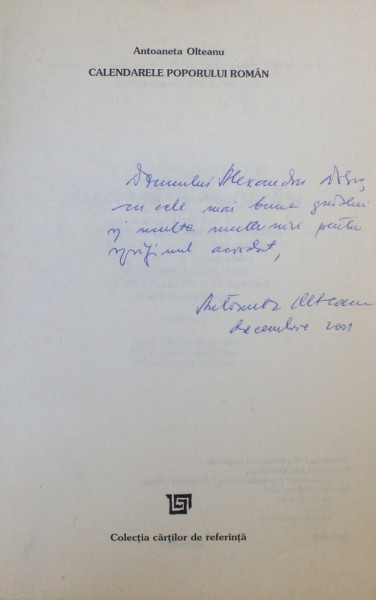 Antoaneta Olteanu
CALENDARELE POPORULUI ROMÂN
Domnului Alexandru
cu cele mai bune gânduri
și multe mulțumiri pentru
sprijinul acordat,
Antoaneta Olteanu
decembrie 2001
Colecția cărților de referință